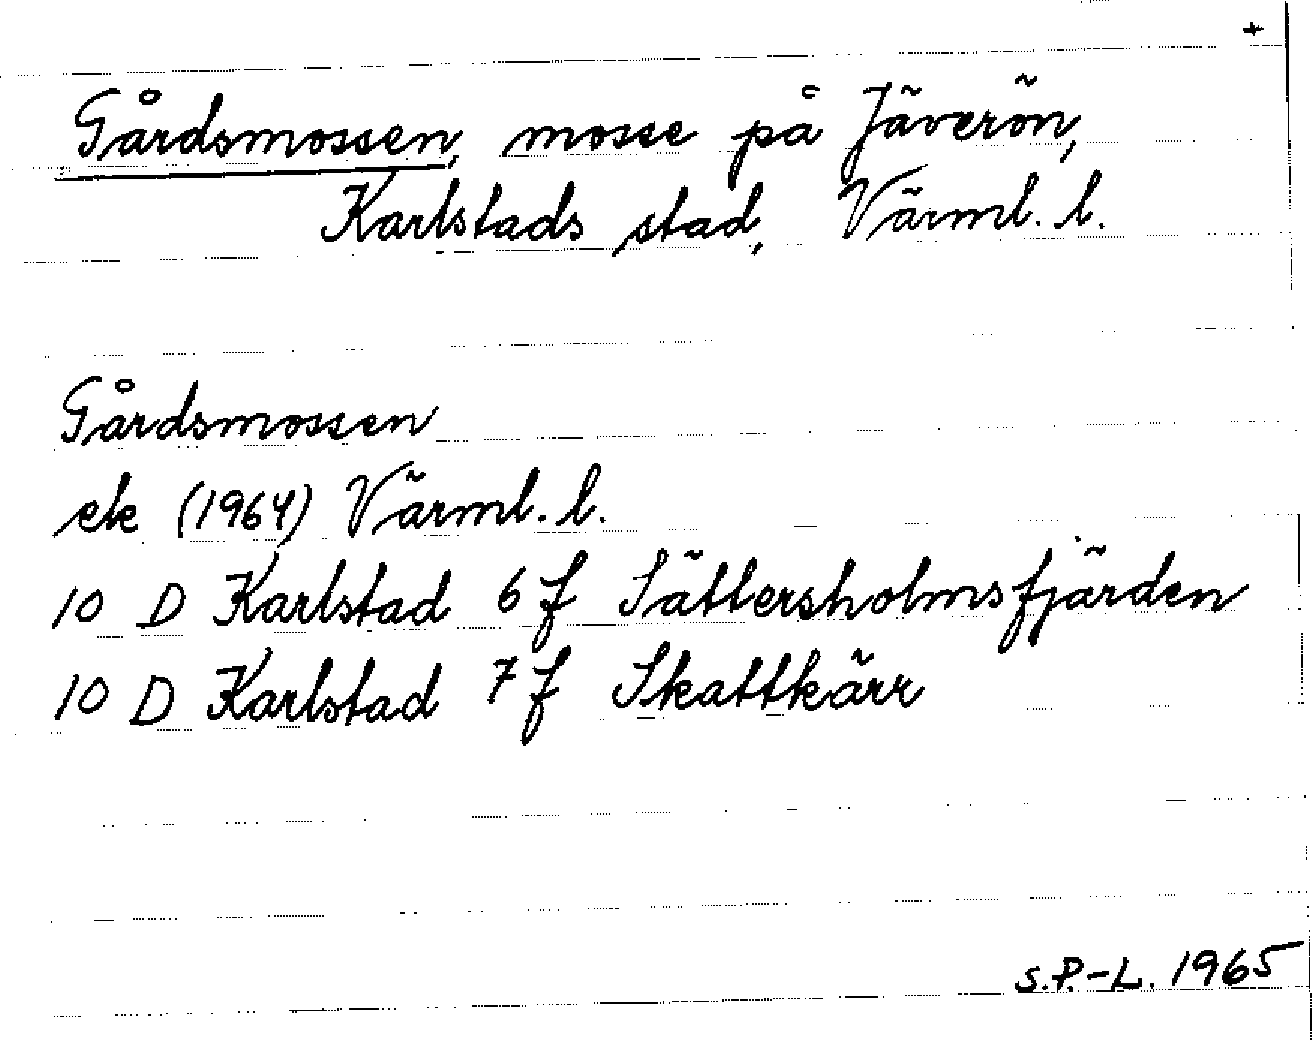 +
Gårdsmossen, mosse på Jäverön,
Karlstads stad, Värml. l.
Gårdsmossen
ek (1964) Värml. l.
10 D Karlstad 6 f Sättersholmsfjärden
10 D Karlstad 7 f Skattkärr
S.P.-L. 1965